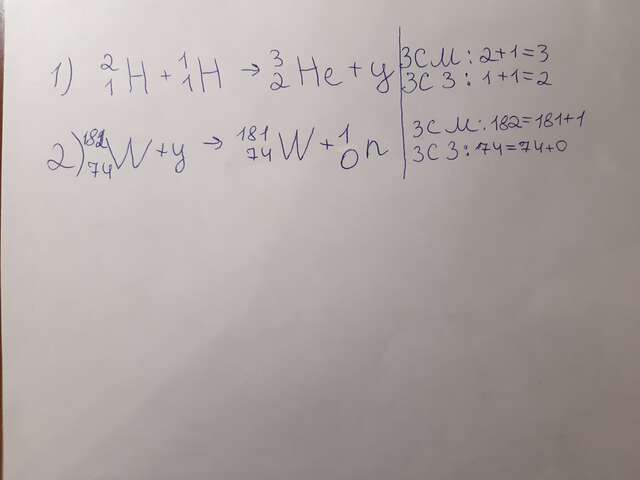 1) ²₁H + ¹₁H → ³₂He + y | ЗСМ: 2+1=3
ЗСЗ: 1+1=2
2) ¹⁸²₇₄W + y → ¹⁸¹₇₄W + ¹₀n | ЗСМ: 182=181+1
ЗСЗ: 74=74+0